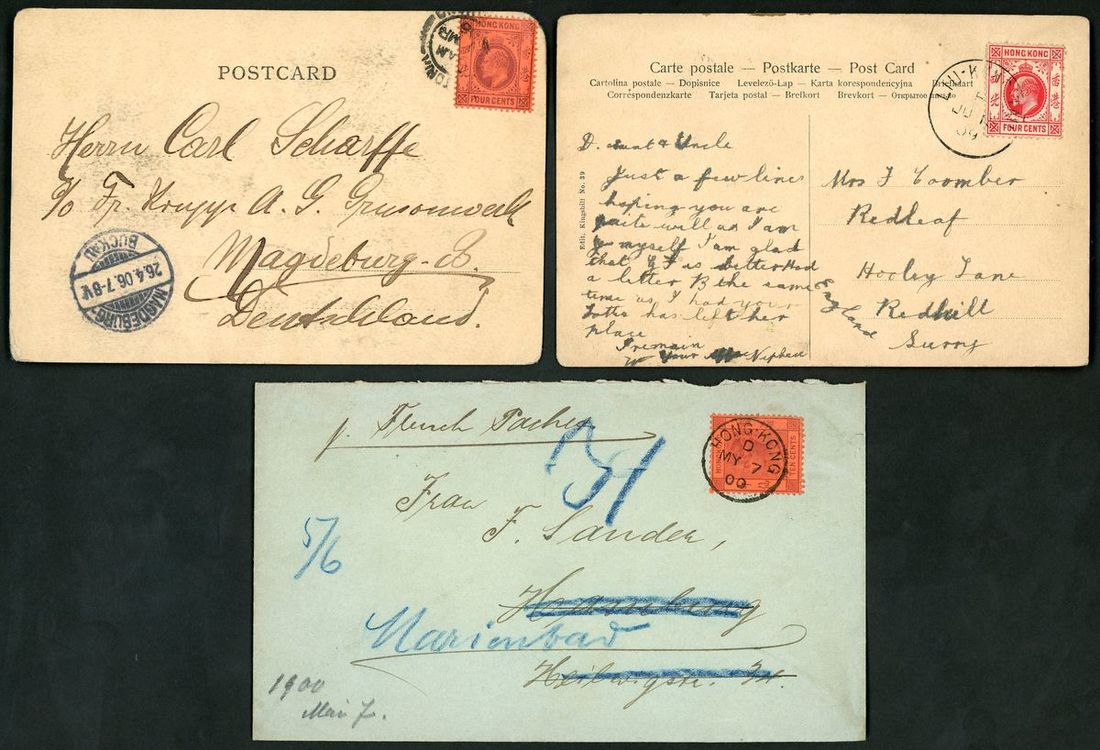 POSTCARD
HONG KONG
FOUR CENTS
Herrn Carl Scharffe
c/o Fr. Krupp A. G. Grusonwerk
Magdeburg-B.
Deutschland.
MAGDEBURG
26.4.06.7-8V.
BUCKAU
Carte postale — Postkarte — Post Card
Cartolina postale — Dopisnice Levelező-Lap — Karta korespondencyjna Briefkaart
Correspondenzkarte Tarjeta postal — Brefkort Brevkort — Открытое письмо
HONG KONG
FOUR CENTS
Edit. Kingshill No. 39
D. aunt & Uncle
Just a few lines
hoping you are
quite will as I am
myself I am glad
that it is better Had
a letter the same
time as I had your
has left her
place
I remain
Your Nephew
Mrs J Coomber
Redleaf
Hooley Lane
Redhill
Surry
England
p. French Packet
HONG-KONG
D
MY 7
00
TEN CENTS
Frau
F. Sander,
Hamburg
Marienbad
5/6
1900
Mai 7.